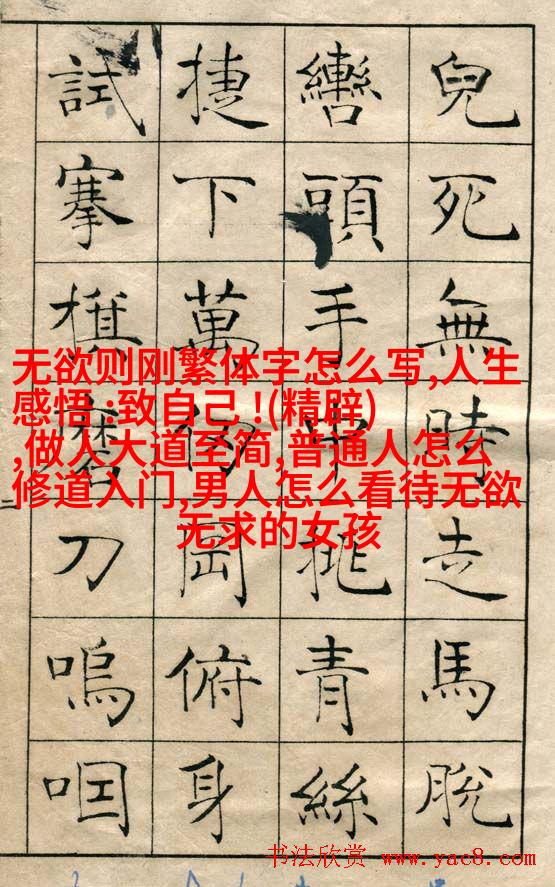 兒死無時走馬脫
轡頭手中挑青絲
捷下萬仞岡俯身
試搴旗磨刀嗚咽
无欲则刚繁体字怎么写,人生
感悟 :致自己 !(精辟)
,做人大道至简,普通人怎么
修道入门,男人怎么看待无欲
无求的女孩
书法欣赏 www.yac8.com